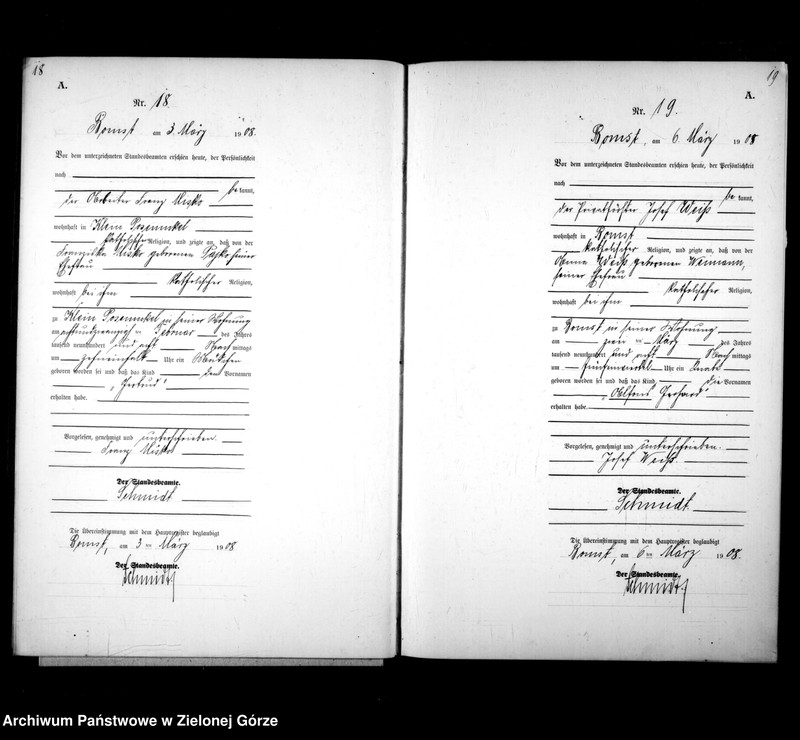 18
A.
Nr. 18.
Bomst am 3. März 1908.
Vor dem unterzeichneten Standesbeamten erschien heute, der Persönlichkeit
nach
be kannt,
der Franz Misko
wohnhaft in Klein Posemukel
katholischer Religion, und zeigte an, daß von der
Franziska Misko geborenen seiner
Ehefrau
katholischer Religion,
wohnhaft bei ihm
zu Klein Posemukel in seiner Wohnung
am achtundzwanzigsten Februar des Jahres
tausend neunhundert und acht Nachmittags
um zehneinhalb Uhr ein Mädchen
geboren worden sei und daß das Kind den Vornamen
„Gertrud“
erhalten habe.
Vorgelesen, genehmigt und unterschrieben.
Franz Misko
Der Standesbeamte.
Schmidt
Die Übereinstimmung mit dem Hauptregister beglaubigt
Bomst, am 3ten März 1908.
Der Standesbeamte.
Schmidt
19
A.
Nr. 19.
Bomst, am 6. März 1908
Vor dem unterzeichneten Standesbeamten erschien heute, der Persönlichkeit
nach
be kannt,
der Josef Weiß
wohnhaft in Bomst
katholischer Religion, und zeigte an, daß von der
Anna Weiß geborenen Weimann,
seiner Ehefrau
katholischer Religion,
wohnhaft bei ihm
zu Bomst in seiner Wohnung
am ten März des Jahres
tausend neunhundert und acht Nachmittags
um Uhr ein Knabe
geboren worden sei und daß das Kind die Vornamen
„Alfons Gerhard“
erhalten habe.
Vorgelesen, genehmigt und unterschrieben.
Josef Weiß.
Der Standesbeamte.
Schmidt.
Die Übereinstimmung mit dem Hauptregister beglaubigt
Bomst, am 6ten März 1908.
Der Standesbeamte.
Schmidt.
Archiwum Państwowe w Zielonej Górze